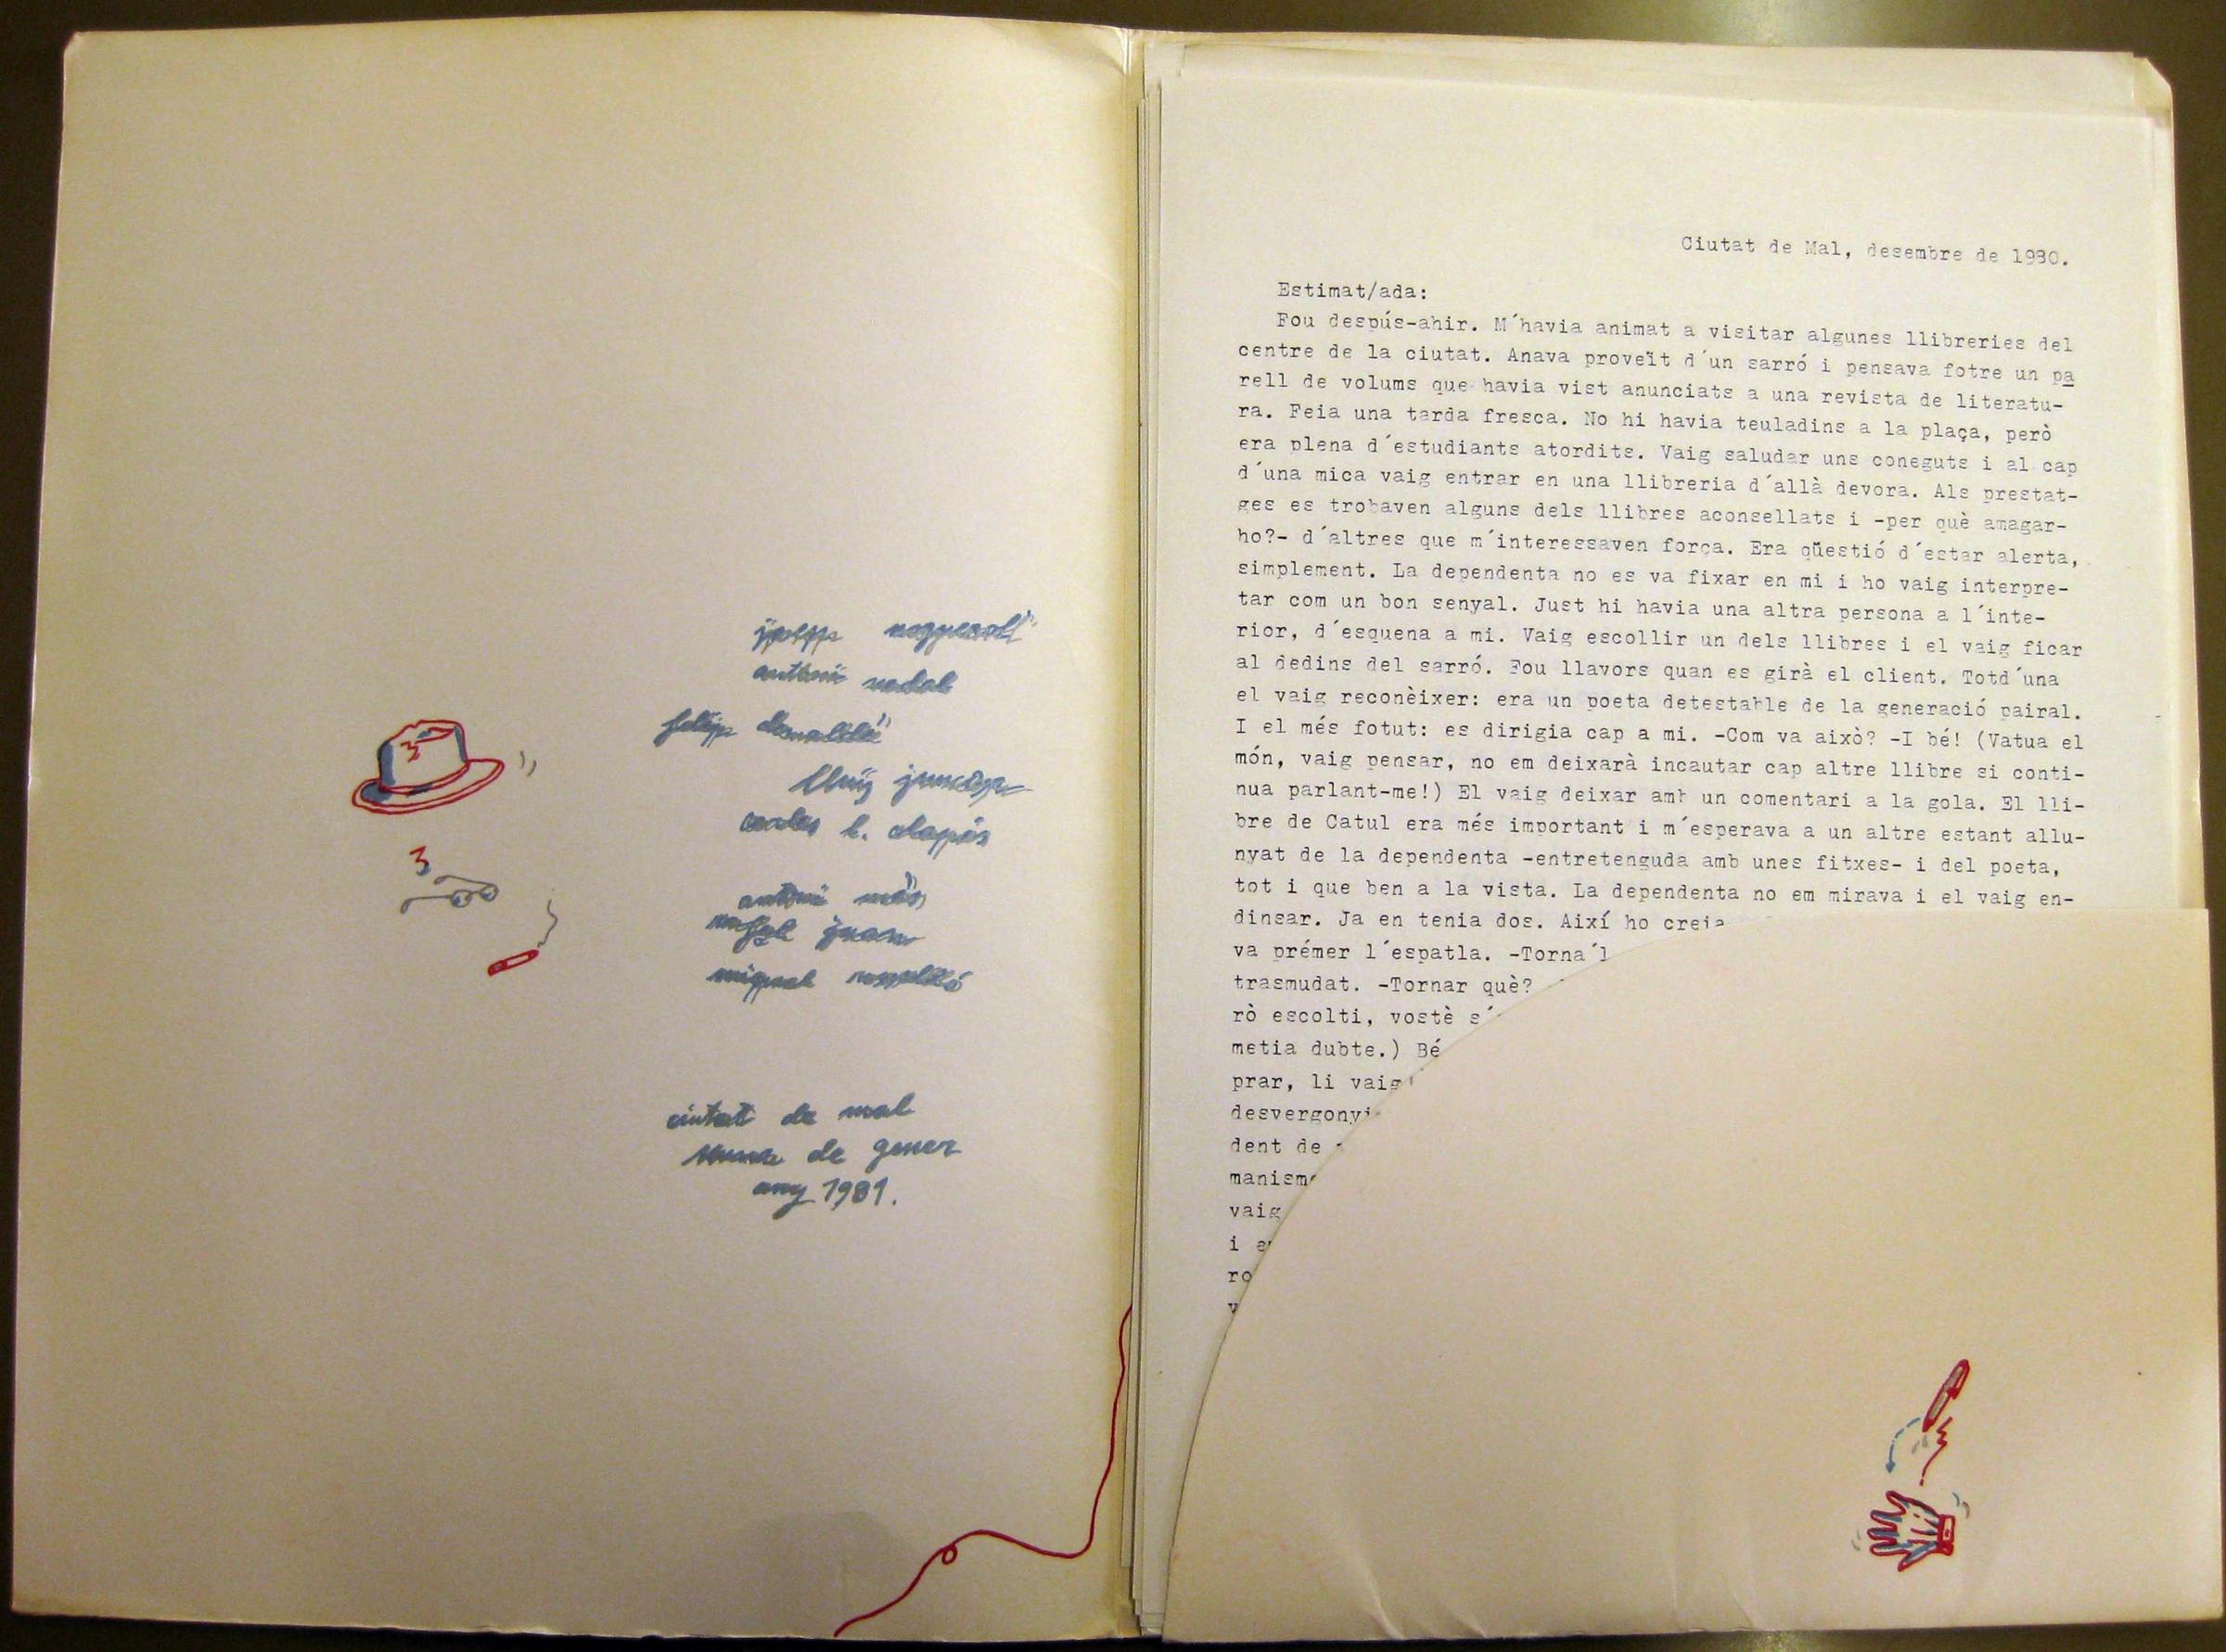 3
3
josep noguerol
antoni nadal
felip demaldé
lluís juncosa
carles h. clapés
antoni mas
rafel joan
miquel rosselló
ciutat de mal
de gener
any 1981.
Ciutat de Mal, desembre de 1980.
Estimat/ada:
Fou despús-ahir. M´havia animat a visitar algunes llibreries del
centre de la ciutat. Anava proveït d´un sarró i pensava fotre un pa
rell de volums que havia vist anunciats a una revista de literatu-
ra. Feia una tarda fresca. No hi havia teuladins a la plaça, però
era plena d´estudiants atordits. Vaig saludar uns coneguts i al cap
d´una mica vaig entrar en una llibreria d´allà devora. Als prestat-
ges es trobaven alguns dels llibres aconsellats i -per què amagar-
ho?- d´altres que m´interessaven força. Era qüestió d´estar alerta,
simplement. La dependenta no es va fixar en mi i ho vaig interpre-
tar com un bon senyal. Just hi havia una altra persona a l´inte-
rior, d´esquena a mi. Vaig escollir un dels llibres i el vaig ficar
al dedins del sarró. Fou llavors quan es girà el client. Totd´una
el vaig reconèixer: era un poeta detestable de la generació pairal.
I el més fotut: es dirigia cap a mi. -Com va això? -I bé! (Vatua el
món, vaig pensar, no em deixarà incautar cap altre llibre si conti-
nua parlant-me!) El vaig deixar amb un comentari a la gola. El lli-
bre de Catul era més important i m´esperava a un altre estant allu-
nyat de la dependenta -entretenguda amb unes fitxes- i del poeta,
tot i que ben a la vista. La dependenta no em mirava i el vaig en-
dinsar. Ja en tenia dos. Així ho creia
va prémer l´espatla. -Torna´l
trasmudat. -Tornar què?
rò escolti, vostè s´
metia dubte.) Bé
prar, li vaig
desvergonyi
dent de
manisme
vaig
i
ro
v